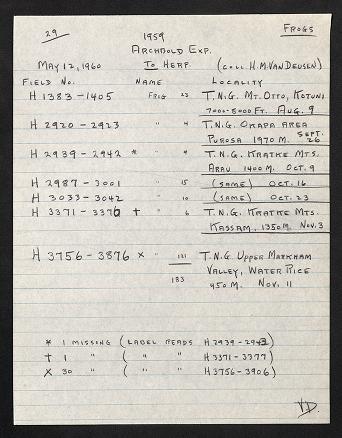 29
FROGS
1959
ARCHBOLD EXP.
MAY 12, 1960 TO HERP. (COLL. H.M. VAN DEUSEN)
FIELD NO. NAME LOCALITY
H 1383-1405 FRIG 23 T.N.G. MT. OTTO, KOTUNI
7000-8000 FT. AUG. 9
H 2920-2923 " 4 T.N.G. OKAPA AREA
PUROSA 1970 M. SEPT. 26
H 2939-2942 * " 4 T.N.G. KRATKE MTS.
ARAU 1400 M. OCT. 9
H 2987-3001 15 (SAME) OCT. 16
H 3033-3042 " 10 (SAME) OCT. 23
H 3371-3376 † " 6 T.N.G. KRATKE MTS.
KASSAM, 1350 M. NOV. 3
H 3756-3876 X " 121 T.N.G. UPPER MARKHAM
183 VALLEY, WATER RICE
450 M. NOV. 11
* 1 MISSING (LABEL READS H 2939-2943)
† 1 " ( " " H 3371-3377)
X 30 " ( " " H 3756-3906)
VD.